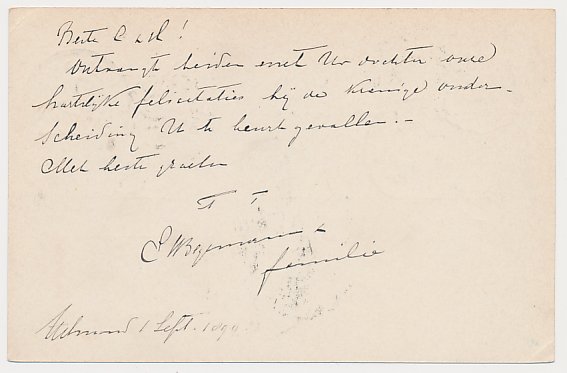 Beste C & H !
Ontvangt beiden met Uw dochter onze
hartelijke felicitaties bij de Konings onder-
scheiding U te beurt gevallen. -
Met beste groeten
T. T.
&
familie
1 Sept.